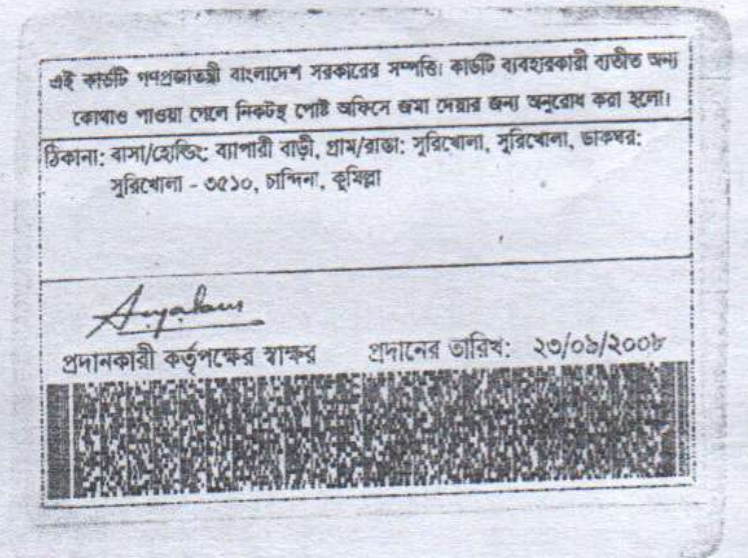 এই কার্ডটি গণপ্রজাতন্ত্রী বাংলাদেশ সরকারের সম্পত্তি। কার্ডটি ব্যবহারকারী ব্যতীত অন্য
কোথাও পাওয়া গেলে নিকটস্থ পোষ্ট অফিসে জমা দেয়ার জন্য অনুরোধ করা হলো।
ঠিকানা: বাসা/হোল্ডিং: ব্যাপারী বাড়ী, গ্রাম/রাস্তা: সুরিখোলা, সুরিখোলা, ডাকঘর:
সুরিখোলা - ৩৫১০, চান্দিনা, কুমিল্লা
প্রদানকারী কর্তৃপক্ষের স্বাক্ষর প্রদানের তারিখ: ২৩/০৯/২০০৮